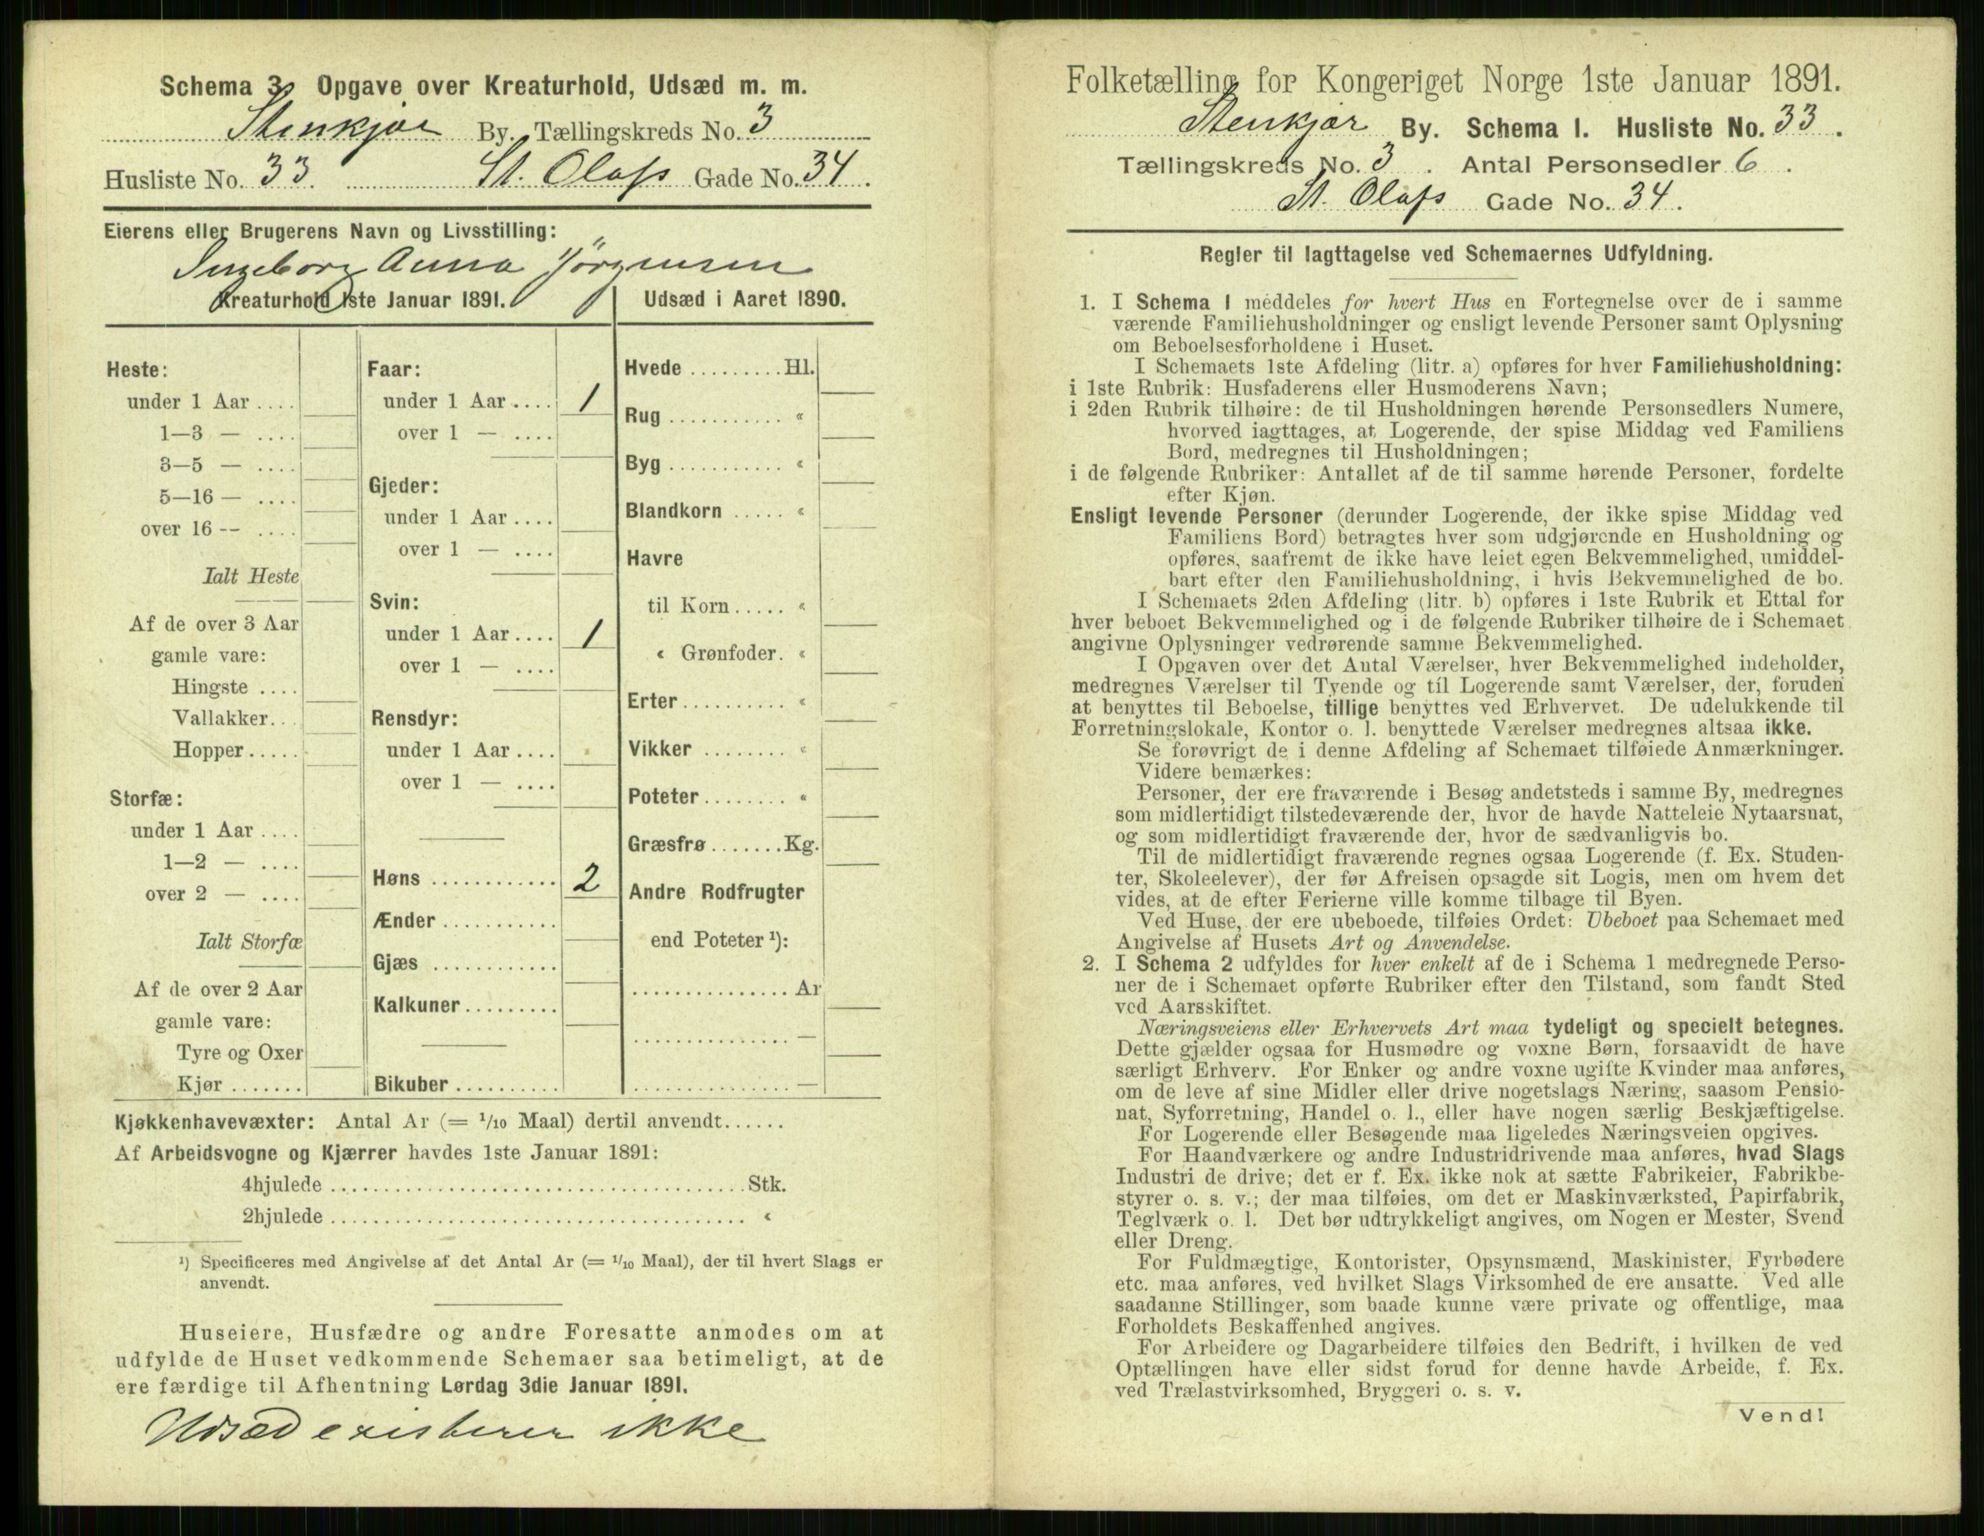 Schema 3. Opgave over Kreaturhold, Udsæd m. m.
Stenkjær By. Tællingskreds No. 3
Husliste No. 33. St. Olafs Gade No. 34.
Eierens eller Brugerens Navn og Livsstilling:
Ingeborg Anna Jörgensen
Kreaturhold 1ste Januar 1891.
Heste:
under 1 Aar ....
1—3 — ....
3—5 — ....
5—16 — ....
over 16 -- ....
Ialt Heste
Af de over 3 Aar
gamle vare:
Hingste ....
Vallakker...
Hopper.....
Storfæ:
under 1 Aar ....
1—2 — ....
over 2 — ....
Ialt Storfæ
Af de over 2 Aar
gamle vare:
Tyre og Oxer
Kjør .......
Faar:
under 1 Aar .... 1
over 1 — ....
Gjeder:
under 1 Aar ....
over 1 — ....
Svin:
under 1 Aar .... 1
over 1 — ....
Rensdyr:
under 1 Aar ....
over 1 — ....
Høns ............ 2
Ænder ...........
Gjæs ............
Kalkuner.........
Bikuber ..........
Udsæd i Aaret 1890.
Hvede .........Hl.
Rug ........... «
Byg ........... «
Blandkorn ..... «
Havre
til Korn..... «
« Grønfoder. «
Erter.......... «
Vikker ........ «
Poteter........ «
Græsfrø.......Kg.
Andre Rodfrugter
end Poteter ¹):
...............Ar
...............—
...............—
Kjøkkenhavevæxter: Antal Ar (= 1/10 Maal) dertil anvendt......
Af Arbeidsvogne og Kjærrer havdes 1ste Januar 1891:
4hjulede .......................................Stk.
2hjulede ....................................... «
¹) Specificeres med Angivelse af det Antal Ar (= 1/10 Maal), der til hvert Slags er
anvendt.
Huseiere, Husfædre og andre Foresatte anmodes om at
udfylde de Huset vedkommende Schemaer saa betimeligt, at de
ere færdige til Afhentning Lørdag 3die Januar 1891.
Udsæd existerer ikke
Folketælling for Kongeriget Norge 1ste Januar 1891.
Stenkjær By. Schema 1. Husliste No. 33.
Tællingskreds No. 3. Antal Personsedler 6.
St. Olafs Gade No. 34.
Regler til Iagttagelse ved Schemaernes Udfyldning.
1. I Schema 1 meddeles for hvert Hus en Fortegnelse over de i samme
værende Familiehusholdninger og ensligt levende Personer samt Oplysning
om Beboelsesforholdene i Huset.
I Schemaets 1ste Afdeling (litr. a) opføres for hver Familiehusholdning:
i 1ste Rubrik: Husfaderens eller Husmoderens Navn;
i 2den Rubrik tilhøire: de til Husholdningen hørende Personsedlers Numere,
hvorved iagttages, at Logerende, der spise Middag ved Familiens
Bord, medregnes til Husholdningen;
i de følgende Rubriker: Antallet af de til samme hørende Personer, fordelte
efter Kjøn.
Ensligt levende Personer (derunder Logerende, der ikke spise Middag ved
Familiens Bord) betragtes hver som udgjørende en Husholdning og
opføres, saafremt de ikke have leiet egen Bekvemmelighed, umiddel-
bart efter den Familiehusholdning, i hvis Bekvemmelighed de bo.
I Schemaets 2den Afdeling (litr. b) opføres i 1ste Rubrik et Ettal for
hver beboet Bekvemmelighed og i de følgende Rubriker tilhøire de i Schemaet
angivne Oplysninger vedrørende samme Bekvemmelighed.
I Opgaven over det Antal Værelser, hver Bekvemmelighed indeholder,
medregnes Værelser til Tyende og til Logerende samt Værelser, der, foruden
at benyttes til Beboelse, tillige benyttes ved Erhvervet. De udelukkende til
Forretningslokale, Kontor o. l. benyttede Værelser medregnes altsaa ikke.
Se forøvrigt de i denne Afdeling af Schemaet tilføiede Anmærkninger.
Videre bemærkes:
Personer, der ere fraværende i Besøg andetsteds i samme By, medregnes
som midlertidigt tilstedeværende der, hvor de havde Natteleie Nytaarsnat,
og som midlertidigt fraværende der, hvor de sædvanligvis bo.
Til de midlertidigt fraværende regnes ogsaa Logerende (f. Ex. Studen-
ter, Skoleelever), der før Afreisen opsagde sit Logis, men om hvem det
vides, at de efter Ferierne ville komme tilbage til Byen.
Ved Huse, der ere ubeboede, tilføies Ordet: Ubeboet paa Schemaet med
Angivelse af Husets Art og Anvendelse.
2. I Schema 2 udfyldes for hver enkelt af de i Schema 1 medregnede Perso-
ner de i Schemaet opførte Rubriker efter den Tilstand, som fandt Sted
ved Aarsskiftet.
Næringsveiens eller Erhvervets Art maa tydeligt og specielt betegnes.
Dette gjælder ogsaa for Husmødre og voxne Børn, forsaavidt de have
særligt Erhverv. For Enker og andre voxne ugifte Kvinder maa anføres,
om de leve af sine Midler eller drive nogetslags Næring, saasom Pensio-
nat, Syforretning, Handel o. l., eller have nogen særlig Beskjæftigelse.
For Logerende eller Besøgende maa ligeledes Næringsveien opgives.
For Haandværkere og andre Industridrivende maa anføres, hvad Slags
Industri de drive; det er f. Ex. ikke nok at sætte Fabrikeier, Fabrikbe-
styrer o. s. v.; der maa tilføies, om det er Maskinværksted, Papirfabrik,
Teglværk o. l. Det bør udtrykkeligt angives, om Nogen er Mester, Svend
eller Dreng.
For Fuldmægtige, Kontorister, Opsynsmænd, Maskinister, Fyrbødere
etc. maa anføres, ved hvilket Slags Virksomhed de ere ansatte. Ved alle
saadanne Stillinger, som baade kunne være private og offentlige, maa
Forholdets Beskaffenhed angives.
For Arbeidere og Dagarbeidere tilføies den Bedrift, i hvilken de ved
Optællingen have eller sidst forud for denne havde Arbeide, f. Ex.
ved Trælastvirksomhed, Bryggeri o. s. v.
Vend!